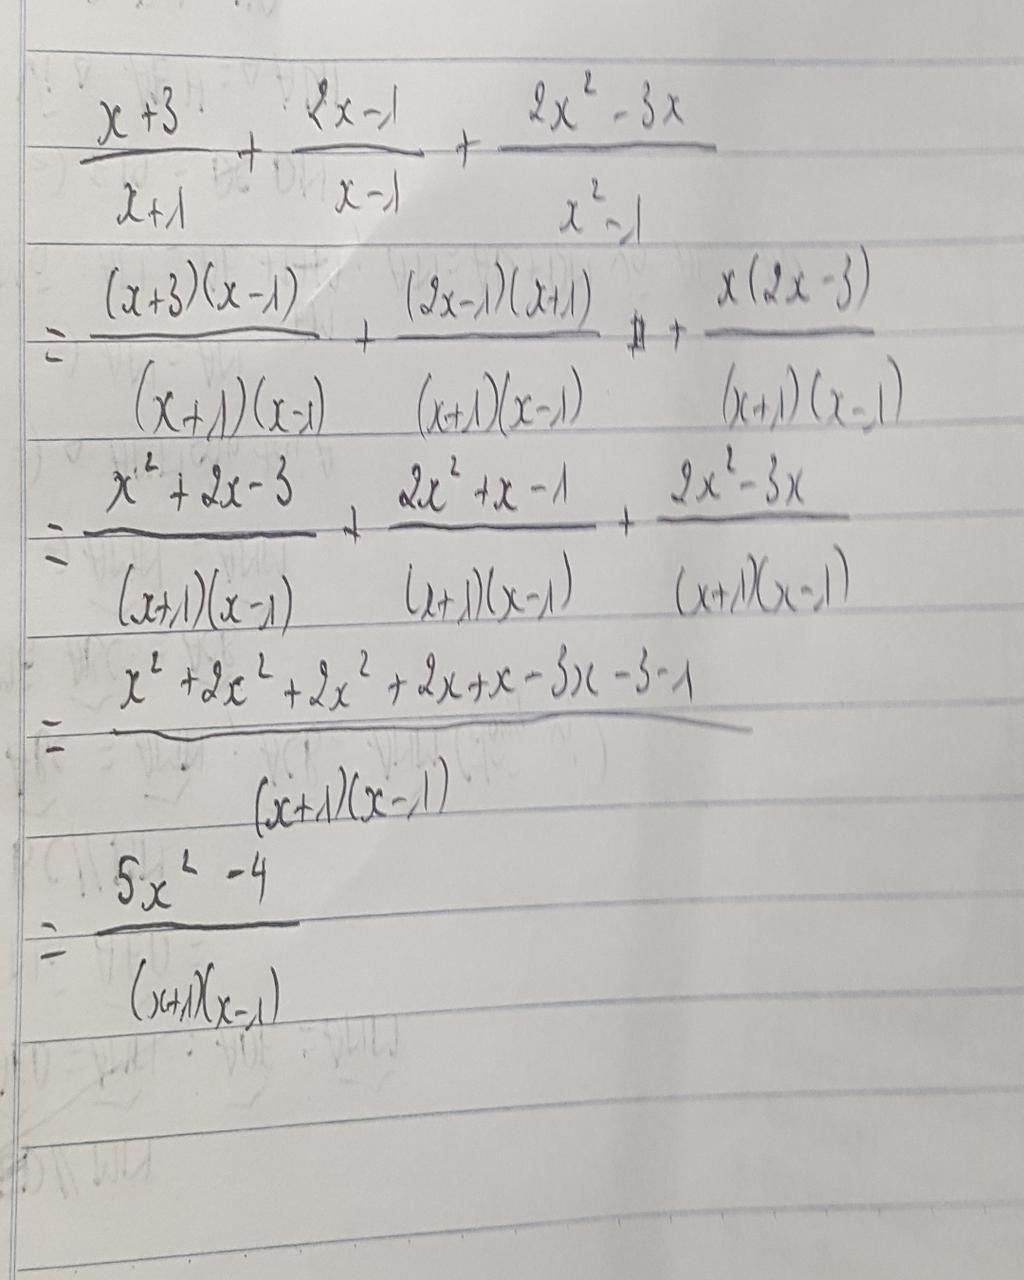 (x+3)/(x+1) + (2x-1)/(x-1) + (2x²-3x)/(x²-1)
= ((x+3)(x-1))/((x+1)(x-1)) + ((2x-1)(x+1))/((x+1)(x-1)) + (x(2x-3))/((x+1)(x-1))
= (x²+2x-3)/((x+1)(x-1)) + (2x²+x-1)/((x+1)(x-1)) + (2x²-3x)/((x+1)(x-1))
= (x²+2x²+2x²+2x+x-3x-3-1)/((x+1)(x-1))
= (5x²-4)/((x+1)(x-1))